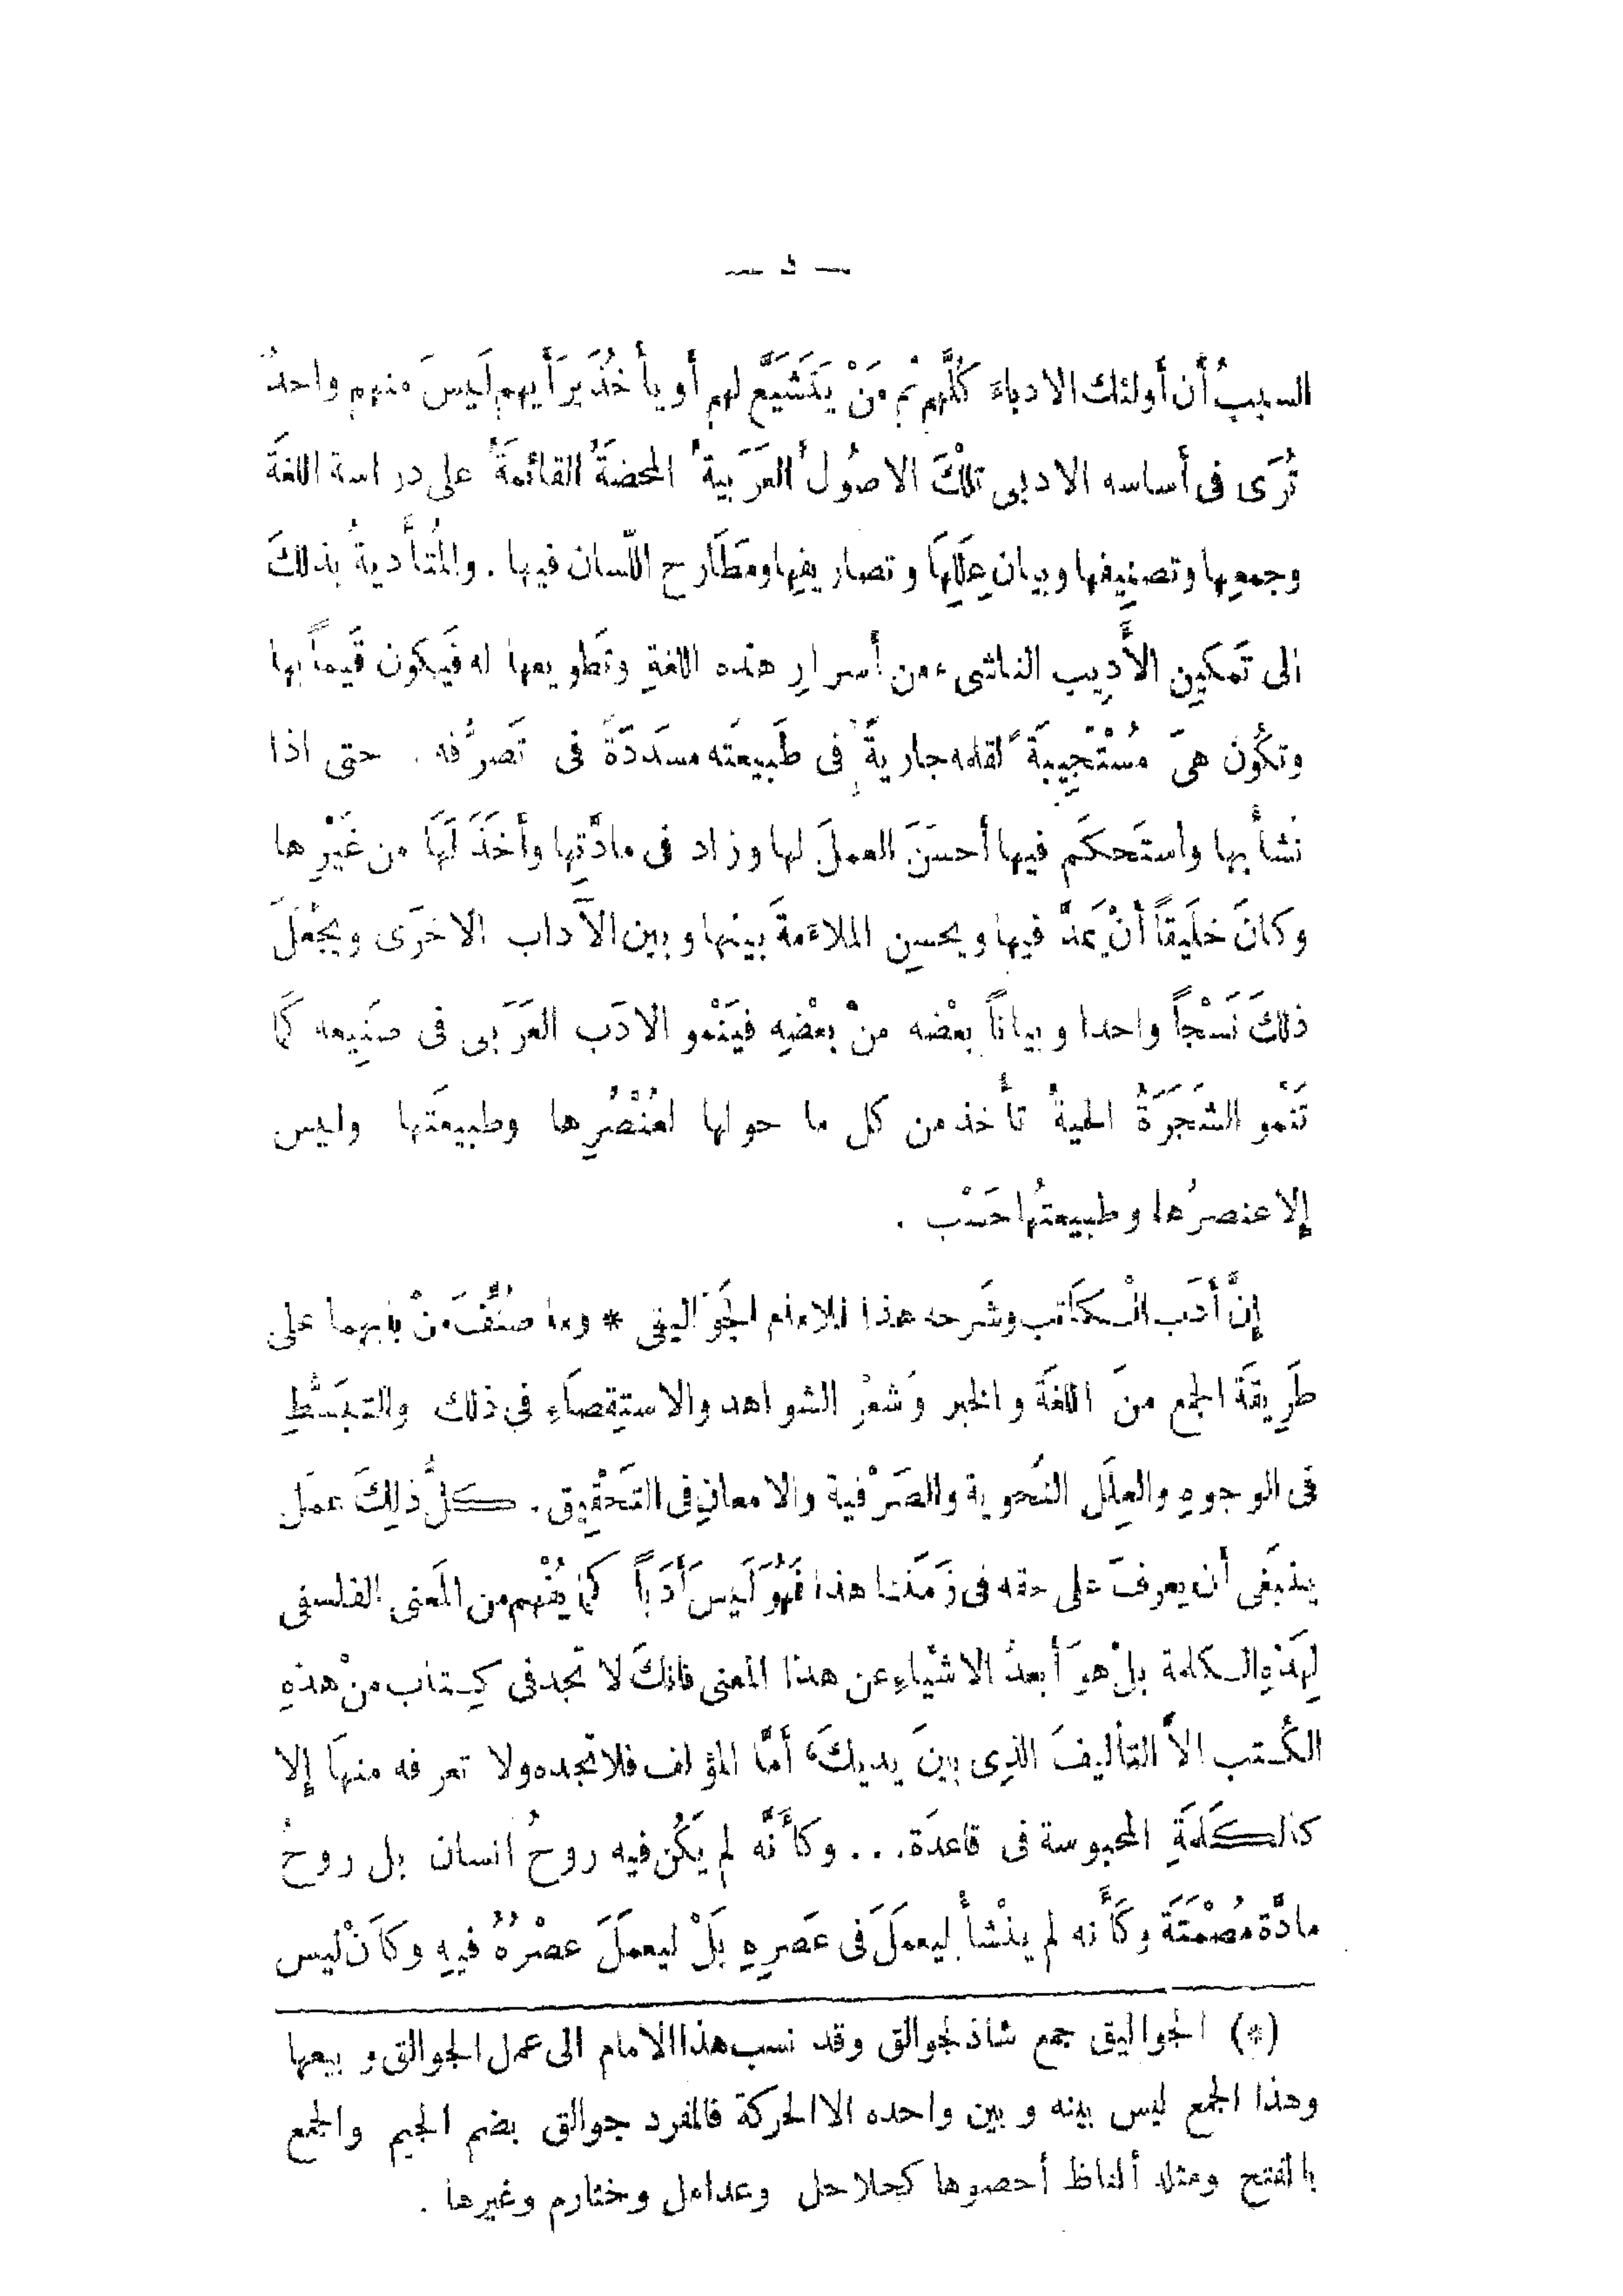 — د —
السببُ أن أولئك الادباءَ كُلَّهم ثم مَنْ يَتَشَيَّع لهم أو يأخُذَ برَأيهم لَيسَ منهم واحدٌ
تُرَى فى أساسه الادبى تلْكَ الاصُول العَرَبية المحضةَ القائمةَ على دراسة اللغةَ
وجمعِها وتصنيفها وبيان عِلَلِهَا وتصاريفها ومَطَارح اللّسان فيها. والمُتأَديةُ بذلكَ
الى تَمكين الأَدِيب الناشىء من أسرارِ هذه اللغةِ وتَطويعها له فَيكون قَيماً بها
وتكُون هىَ مُسْتَجِيبَةً لقلمه جاريةً فى طَبيعَته مسَددّةً فى تَصرُّفه. حتى اذا
نَشأَ بها واستَحكَم فيها أحسَنَ العملَ لها وزاد فى مادَّتِها وأخَذَ لَهَا من غَيْرِها
وكانَ خلَيقاً أنْ يَمدَّ فيها ويحسِن الملاءَمةَ بَينها وبين الآداب الاخرَى ويجْعَلَ
ذلكَ نَسْجاً واحدا وبياناً بعْضه منْ بعْضِه فيَنْمو الادَب العَرَبى فى صَنِيعه كَما
تَنْمو الشَجَرَةُ الحيةُ تأخذ من كل ما حولها لعُنْصُرِها وطبيعَتها وليس
إلا عنصرُها وطبيعتُها حَسْب .
إنَّ أدَب الْكَاتب وشَرحه هذا للامام الجَوَاليقى * وما صُنِّفَ منْ بابهما على
طَرِيقَة الجمع منَ اللغَة والخبر وَشعْر الشواهد والاستِقصَاءِ فى ذلك والتبَسُّطِ
فى الوجوهِ والعِلَل النَحوية والصَرْفية والامعانِ فى التَحْقِيق. كلُّ ذلِكَ عمَل
ينبَغى أن يعرفَ على حقه فى زَمَننا هذا فَهُوَ لَيسَ أَدَباً كما يُفْهم من المَعنى الفلسفى
لِهَذهِ الكلمة بلْ هوَ أَبعدُ الاشيَاءِ عن هذا المعنى فانكَ لا تجد فى كِتاب منْ هذهِ
الكُتب الاَّ التأليفَ الذِى بينَ يديكَ، أمَّا المؤلف فلا تجده ولا تعرفه منهَا إلا
كالكَلمَةِ المحبوسة فى قاعدَة... وكأَنَّه لم يَكُن فيه روحُ انسان بل روحُ
مادَّة مُصْمَتَة وكَأَنه لم ينْشأ ليعمَلَ فى عَصرِهِ بَلْ ليعمَلَ عصْرُهُ فيهِ وكاَنْ ليس
(*) الجواليق جمع شاذ لجوالق وقد نسب هذا الامام الى عمل الجوالق وبيعها
وهذا الجمع ليس بينه وبين واحده الا الحركة فالمفرد جوالق بضم الجيم والجمع
بالفتح ومثله ألفاظ أحصوها كجلاحل وعدامل وخثارم وغيرها .